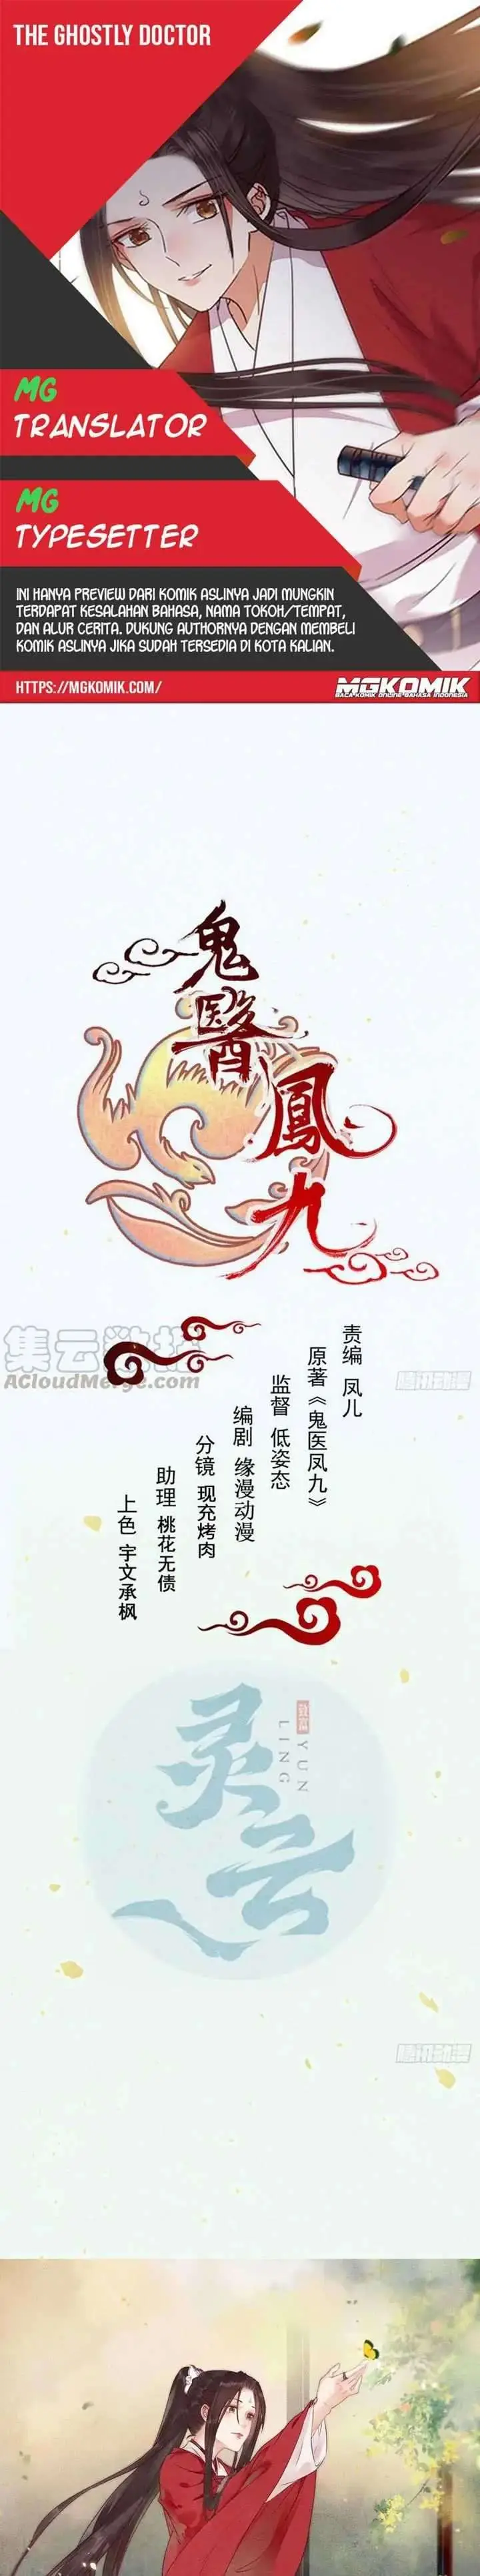 THE GHOSTLY DOCTOR
MG
TRANSLATOR
MG
TYPESETTER
INI HANYA PREVIEW DARI KOMIK ASLINYA JADI MUNGKIN
TERDAPAT KESALAHAN BAHASA, NAMA TOKOH/TEMPAT,
DAN ALUR CERITA. DUKUNG AUTHORNYA DENGAN MEMBELI
KOMIK ASLINYA JIKA SUDAH TERSEDIA DI KOTA KALIAN.
HTTPS://MGKOMIK.COM/
MGKOMIK
BACA KOMIK ONLINE BAHASA INDONESIA
鬼醫鳳九
责编 凤儿
原著《鬼医凤九》
监督 低姿态
编剧 缘漫动漫
分镜 现充烤肉
助理 桃花无债
上色 宇文承枫
集云数据
ACloudMerge.com
腾讯动漫
灵云
致富
YUN
LING
腾讯动漫